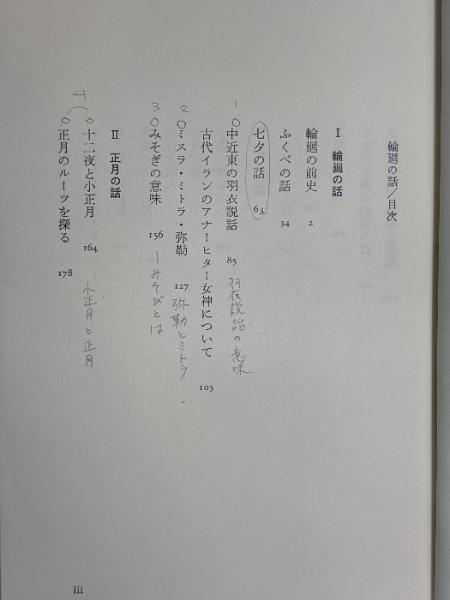 輪廻の話/目次
I 輪廻の話
輪廻の前史 2
ふくべの話 34
七夕の話 63
1 ○中近東の羽衣説話 85
羽衣説話の意味
古代イランのアナーヒター女神について 105
2 ○ミスラ・ミトラ・弥勒 127
弥勒とミトラ
3 ○みそぎの意味 156
ーみそびとは
II 正月の話
4
○十二夜と小正月 164
小正月と正月
○正月のルーツを探る 178
iii